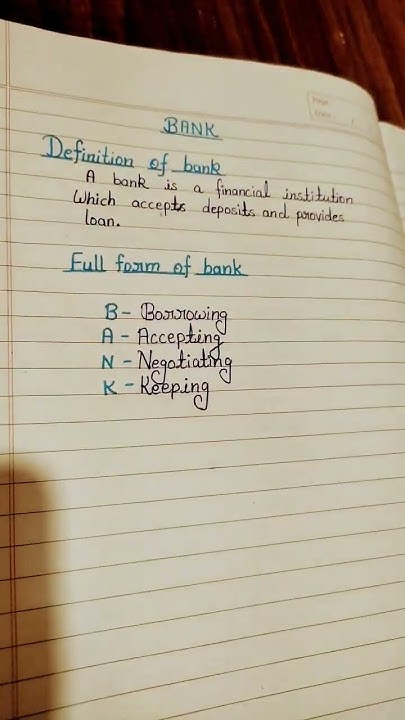 BANK
Definition of bank
A bank is a financial institution
Which accepts deposits and provides
loan.
Full form of bank
B - Borrowing
A - Accepting
N - Negotiating
K - Keeping